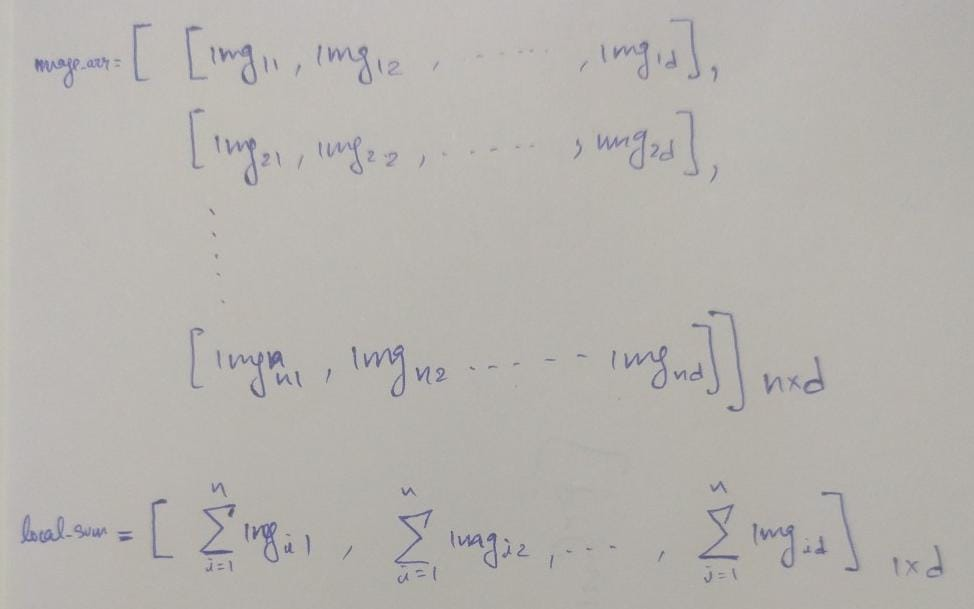 image_arr = [ [img₁₁, img₁₂, ......, img₁d],
[img₂₁, img₂₂, ......, img₂d],
.....
[imgₙ₁, imgₙ₂ ------ imgₙd]] n×d
local_sum = [ ∑ⁿᵢ₌₁ imgᵢ₁, ∑ⁿᵢ₌₁ imagᵢ₂, ...., ∑ⁿᵢ₌₁ imgᵢd ] 1×d